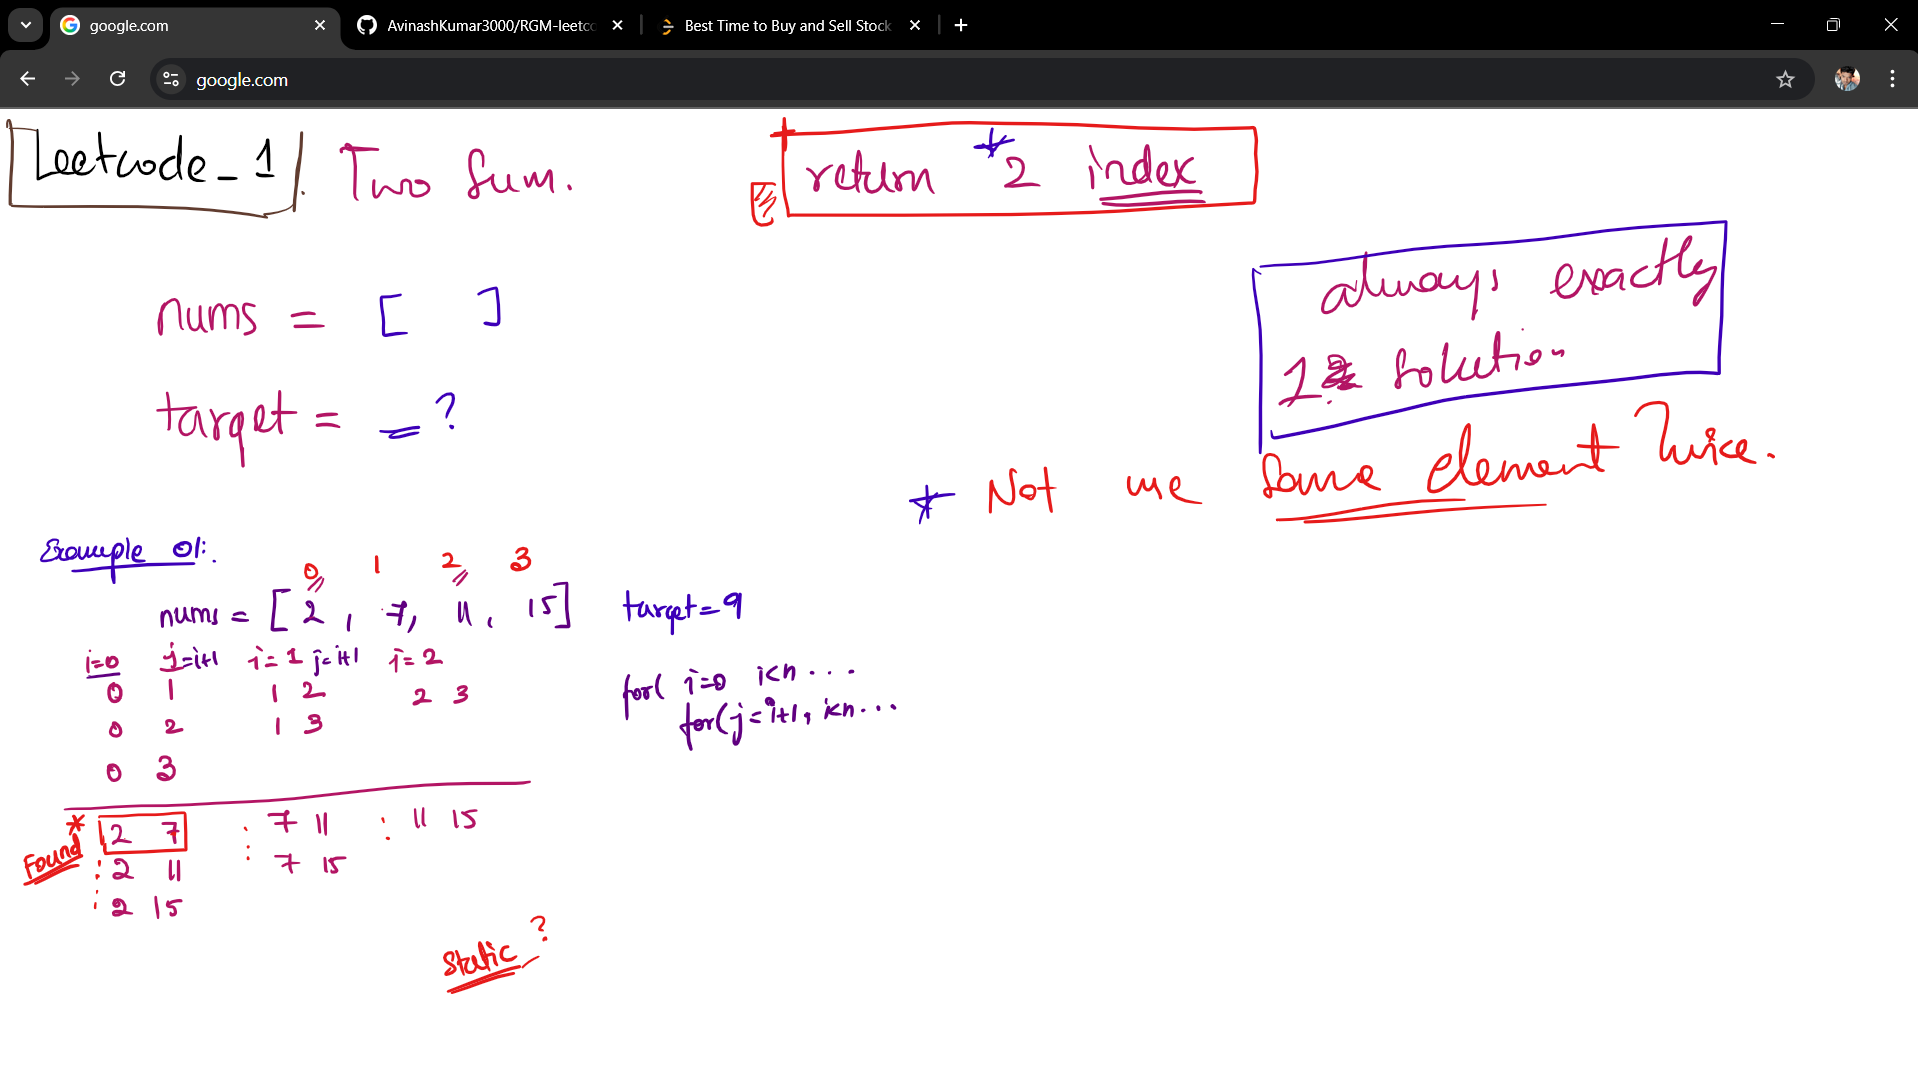 google.com
AvinashKumar3000/RGM-leetco
Best Time to Buy and Sell Stock
google.com
Leetcode_1. Two Sum.
return 2 index
nums = [ ]
always exactly
1 solution
target = _ ?
* Not use same element twice.
Example 01:
0 1 2 3
nums = [ 2, 7, 11, 15 ] target = 9
i=0 j=i+1 i=1 j=i+1 i=2
0 1 1 2 2 3
0 2 1 3
0 3
for( i=0 i<n ...
for(j=i+1, i<n ...
* Found
2 7 : 7 11 : 11 15
: 2 11 : 7 15
: 2 15
static ?